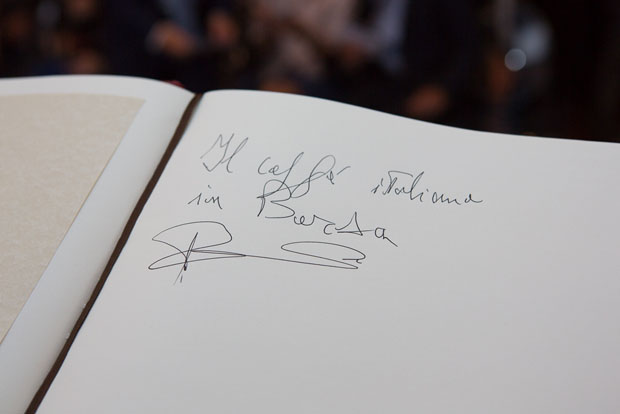 Il caffè italiano
in Borsa